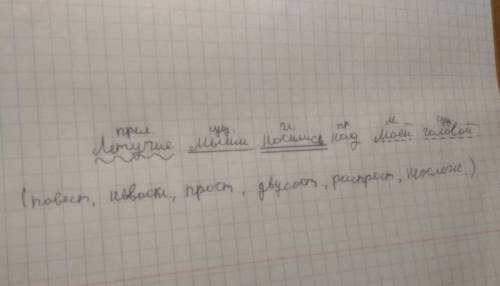 прил. сущ. г. пр м сущ.
Летучие мыши носились над моей головой
(повест, невоскл, прост, двусост, распрост, неослож.)